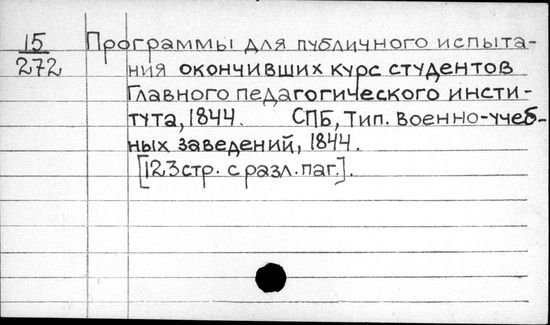 15 Программы для публичного испыта-
272 ния окончивших курс студентов
Главного педагогического инсти-
тута, 1844. СПБ, Тип. военно-учеб-
ных заведений, 1844.
[123 стр. с разл. паг.].